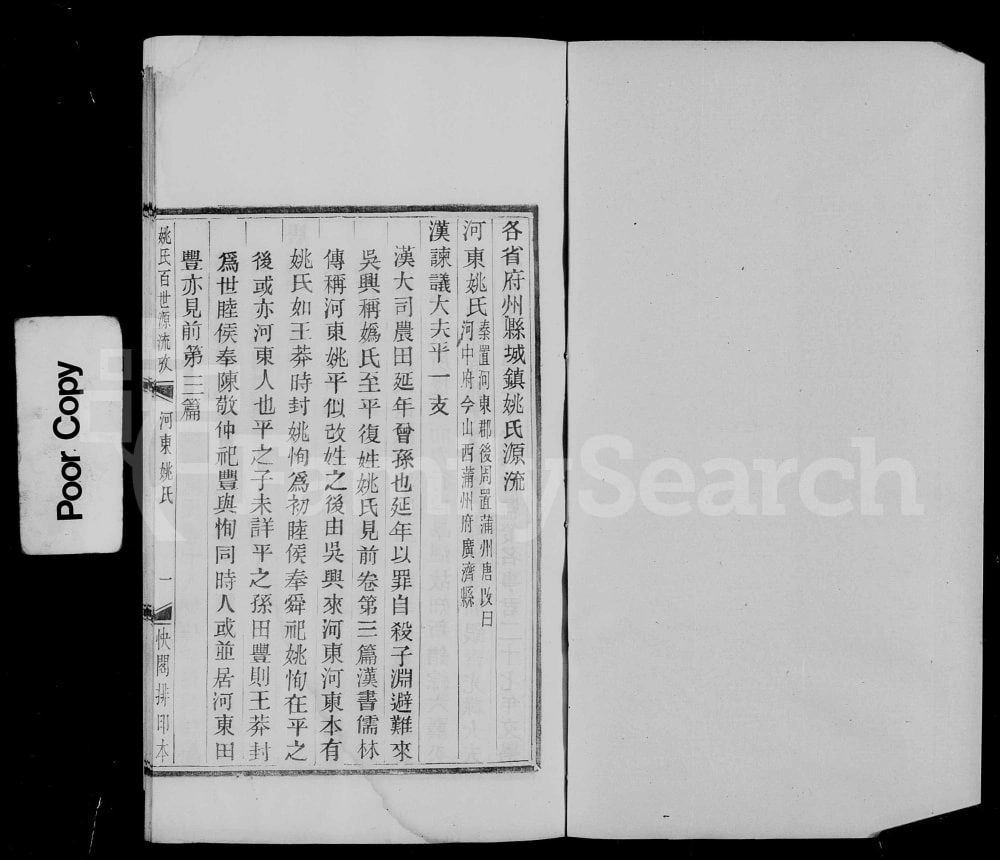 各省府州縣城鎮姚氏源流
河東姚氏秦置河東郡後周置蒲州唐改曰
河中府今山西蒲州府廣濟縣
漢諫議大夫平一支
漢大司農田延年曾孫也延年以罪自殺子淵避難來
吳興稱嬀氏至平復姓姚氏見前卷第三篇漢書儒林
傳稱河東姚平似改姓之後由吳興來河東河東本有
姚氏如王莽時封姚恂爲初睦侯奉舜祀姚恂在平之
後或亦河東人也平之子未詳平之孫田豐則王莽封
爲世睦侯奉陳敬仲祀豐與恂同時人或並居河東田
豐亦見前第三篇
姚氏百世源流攷
河東姚氏
一
快閣排印本
Poor Copy
FamilySearch